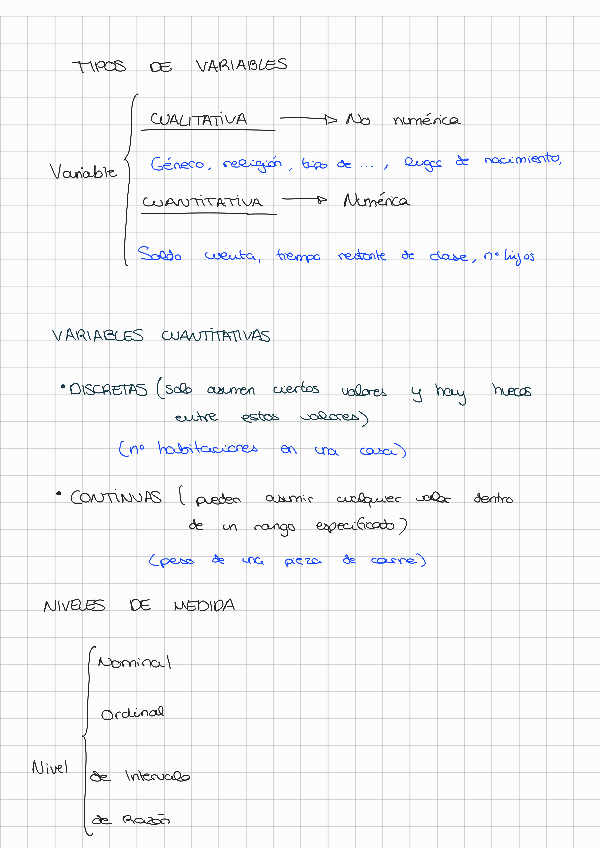 TIPOS DE VARIABLES
CUALITATIVA → No numérica
Género, religión, tipo de ..., lugar de nacimiento,
Variable
CUANTITATIVA → Numérica
Saldo cuenta, tiempo restante de clase, nº hijos
VARIABLES CUANTITATIVAS
• DISCRETAS (solo asumen ciertos valores y hay huecos
entre estos valores)
(nº habitaciones en una casa)
• CONTINUAS ( pueden asumir cualquier valor dentro
de un rango especificado)
(peso de una pieza de carne)
NIVELES DE MEDIDA
Nominal
Ordinal
Nivel
de Intervalo
de Razón